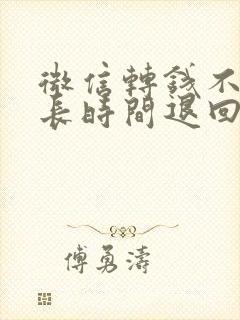 微信轉錢不
長時間退回
傅勇濤